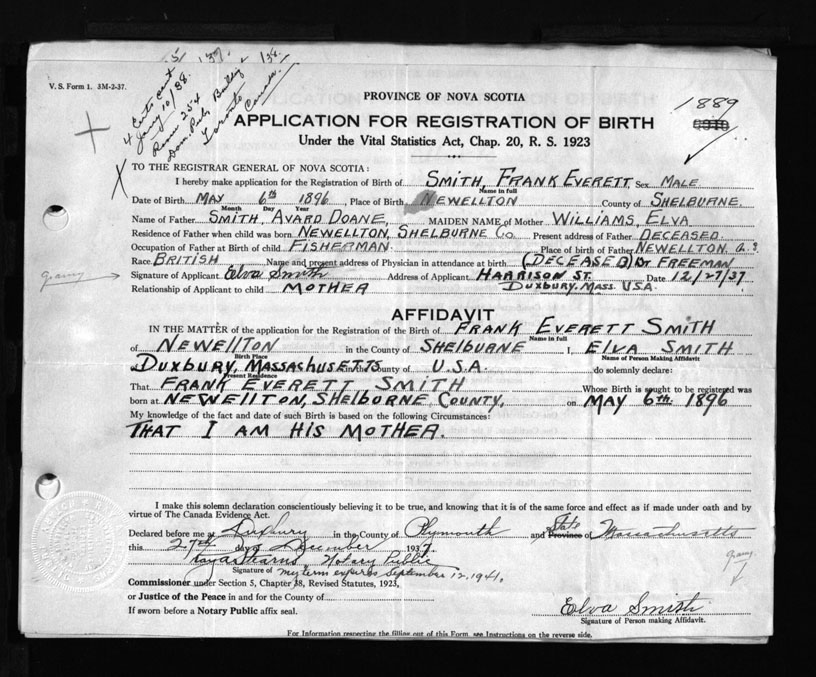 V. S. Form 1. 3M-2-37.
15 137. 138.
4 Certs cut
Jany 10/38.
Room 254
Dom. Pub. Building
Toronto
Canada
PROVINCE OF NOVA SCOTIA
1889
APPLICATION FOR REGISTRATION OF BIRTH
Under the Vital Statistics Act, Chap. 20, R. S. 1923
TO THE REGISTRAR GENERAL OF NOVA SCOTIA:
I hereby make application for the Registration of Birth of SMITH, FRANK EVERETT Sex MALE
Name in full
Date of Birth MAY 6th 1896, Place of Birth NEWELLTON County of SHELBURNE.
Month Day Year
Name of Father SMITH, AVARD DOANE, MAIDEN NAME of Mother WILLIAMS, ELVA
Residence of Father when child was born NEWELLTON, SHELBURNE Co. Present address of Father DECEASED.
Occupation of Father at Birth of child FISHERMAN. Place of birth of Father NEWELLTON
Race BRITISH Name and present address of Physician in attendance at birth (DECEASED) Dr FREEMAN
Signature of Applicant Elva Smith Address of Applicant HARRISON ST. Date 12/27/37
Relationship of Applicant to child MOTHER DUXBURY, MASS. USA.
AFFIDAVIT
IN THE MATTER of the application for the Registration of the Birth of FRANK EVERETT SMITH
Name in full
of NEWELLTON in the County of SHELBURNE I, ELVA SMITH
Birth Place Name of Person Making Affidavit
of DUXBURY, MASSACHUSETTS in the County of U.S.A. do solemnly declare:
Present Residence
That FRANK EVERETT SMITH Whose Birth is sought to be registered was
born at NEWELLTON, SHELBORNE COUNTY, on MAY 6th. 1896
My knowledge of the fact and date of such Birth is based on the following Circumstances:
THAT I AM HIS MOTHER.
I make this solemn declaration conscientiously believing it to be true, and knowing that it is of the same force and effect as if made under oath and by
virtue of The Canada Evidence Act.
Declared before me at Duxbury in the County of Plymouth and State Province of Massachusetts
this 27th day of December 1937.
Notary Public
Signature of my term expires September 12, 1941.
Commissioner under Section 5, Chapter 38, Revised Statutes, 1923,
or Justice of the Peace in and for the County of
If sworn before a Notary Public affix seal.
Elva Smith
Signature of Person making Affidavit.
For Information respecting the filling out of this Form, see Instructions on the reverse side.